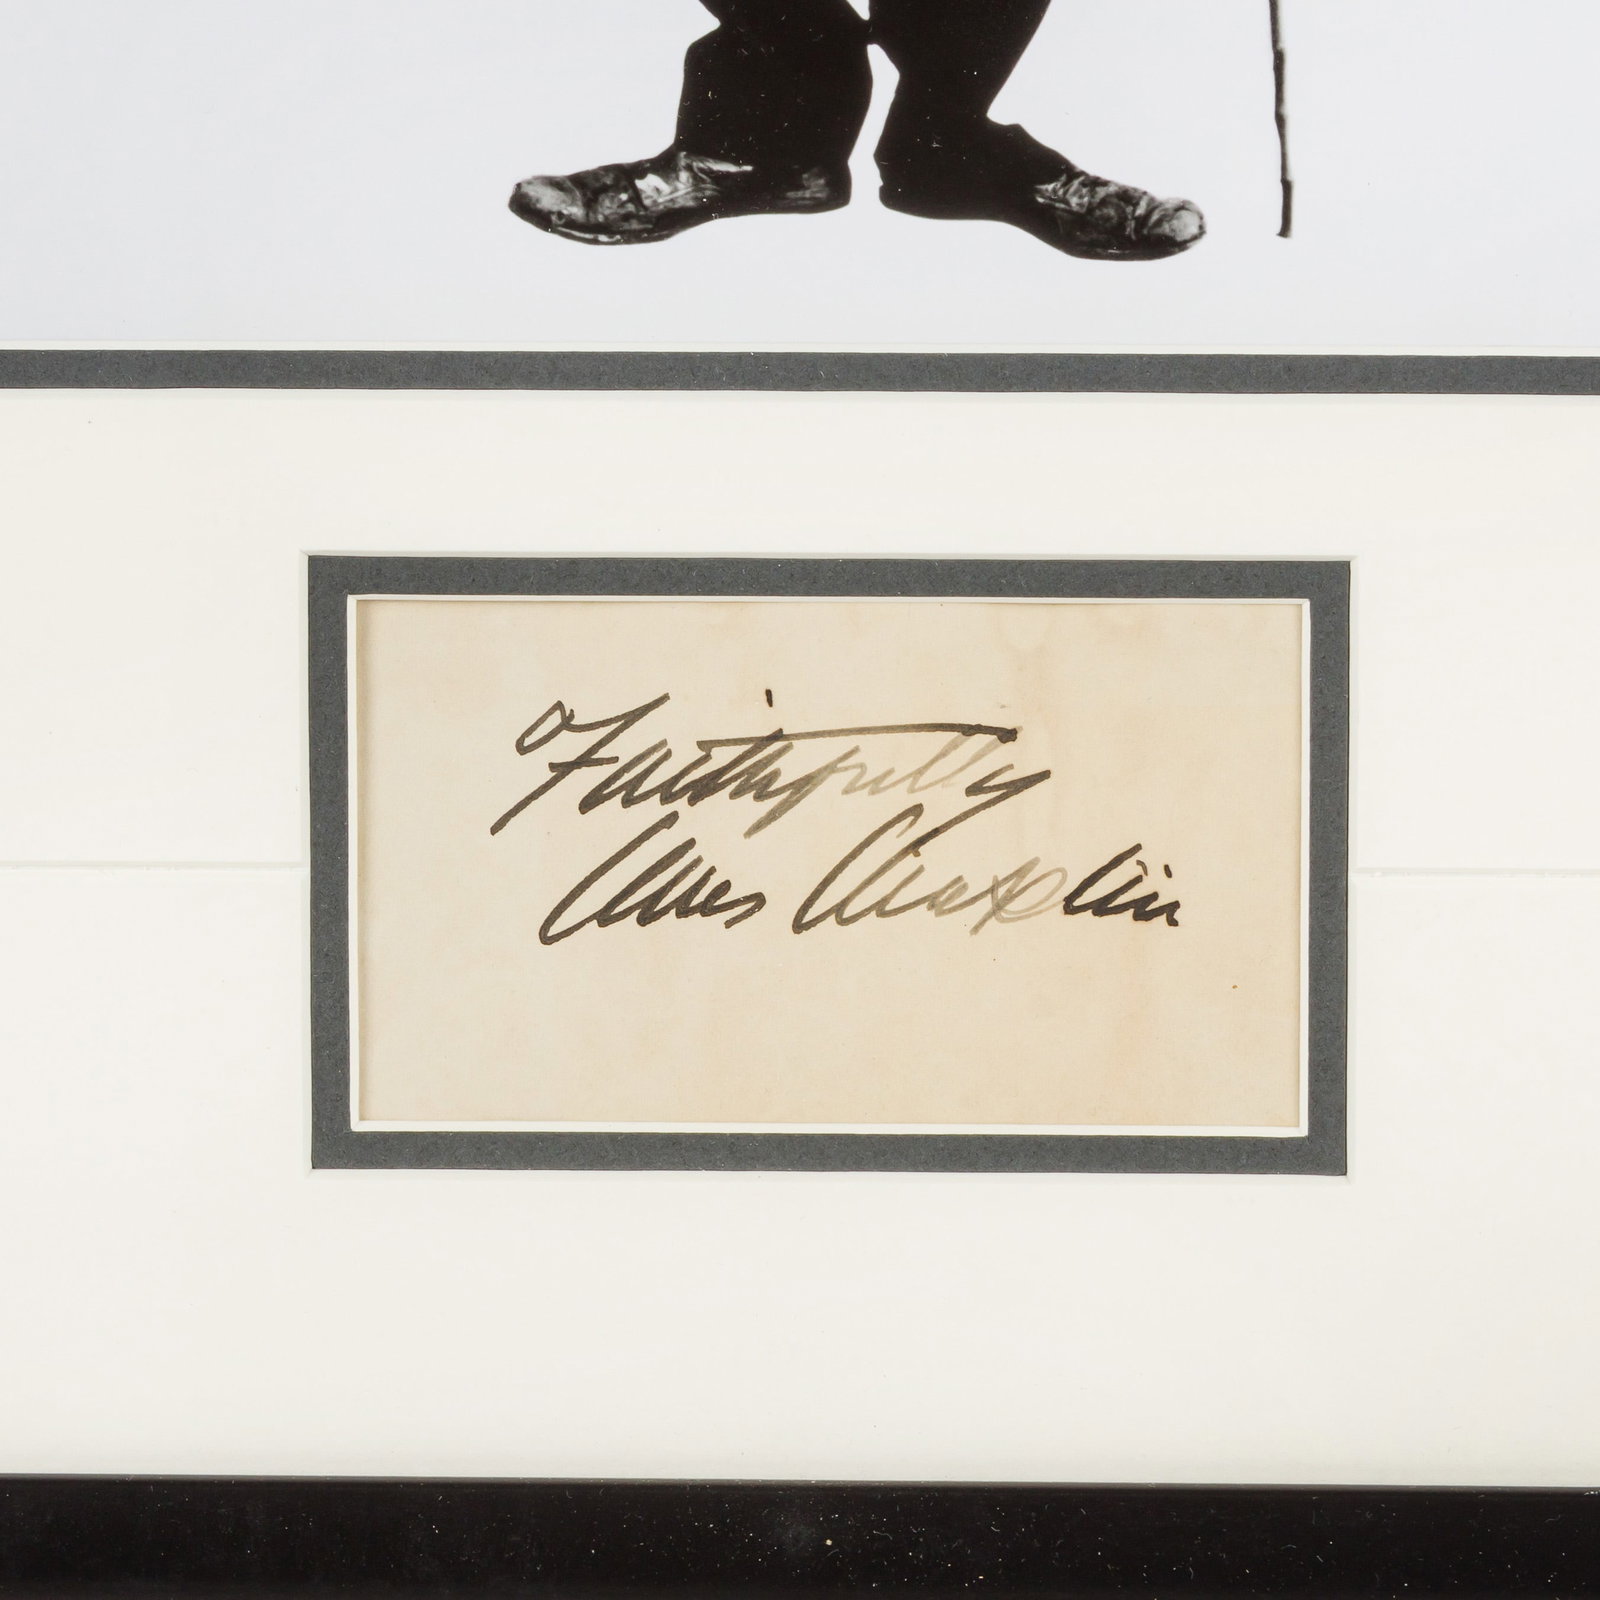 Faithfully
Charles Chaplin